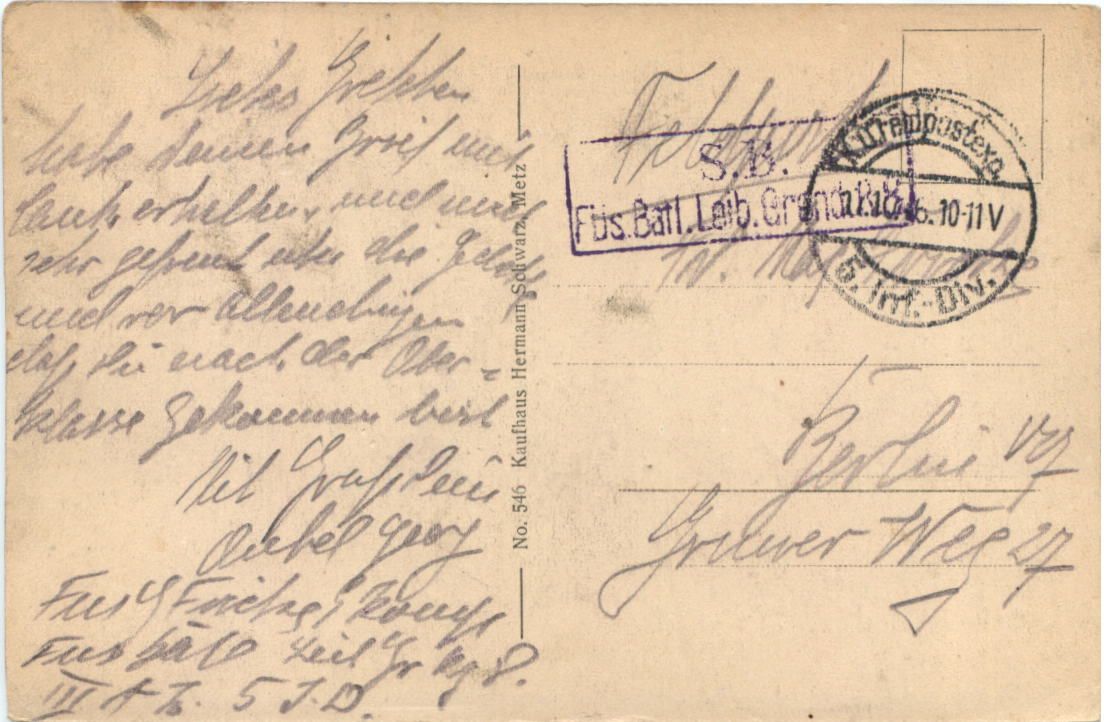 Liebes Gretchen
habe deinen Brief mit
Dank erhalten, und mich
sehr gefreut über die
und vor allendingen
daß Du nach der Ober-
klasse gekommen bist
Mit Gruß Dein
Onkel Georg
Fus G
Fus Batl Leib Gr Rg 8.
III A K. 5 I. D.
No. 546 Kaufhaus Hermann Schwarz, Metz
Feldpost
S.B.
Füs. Batl. Leib. Grend. R. 8
K.D. Feldpostexp.
10-11 V
5. Inf.-Div.
Berlin
Gruner Weg 27